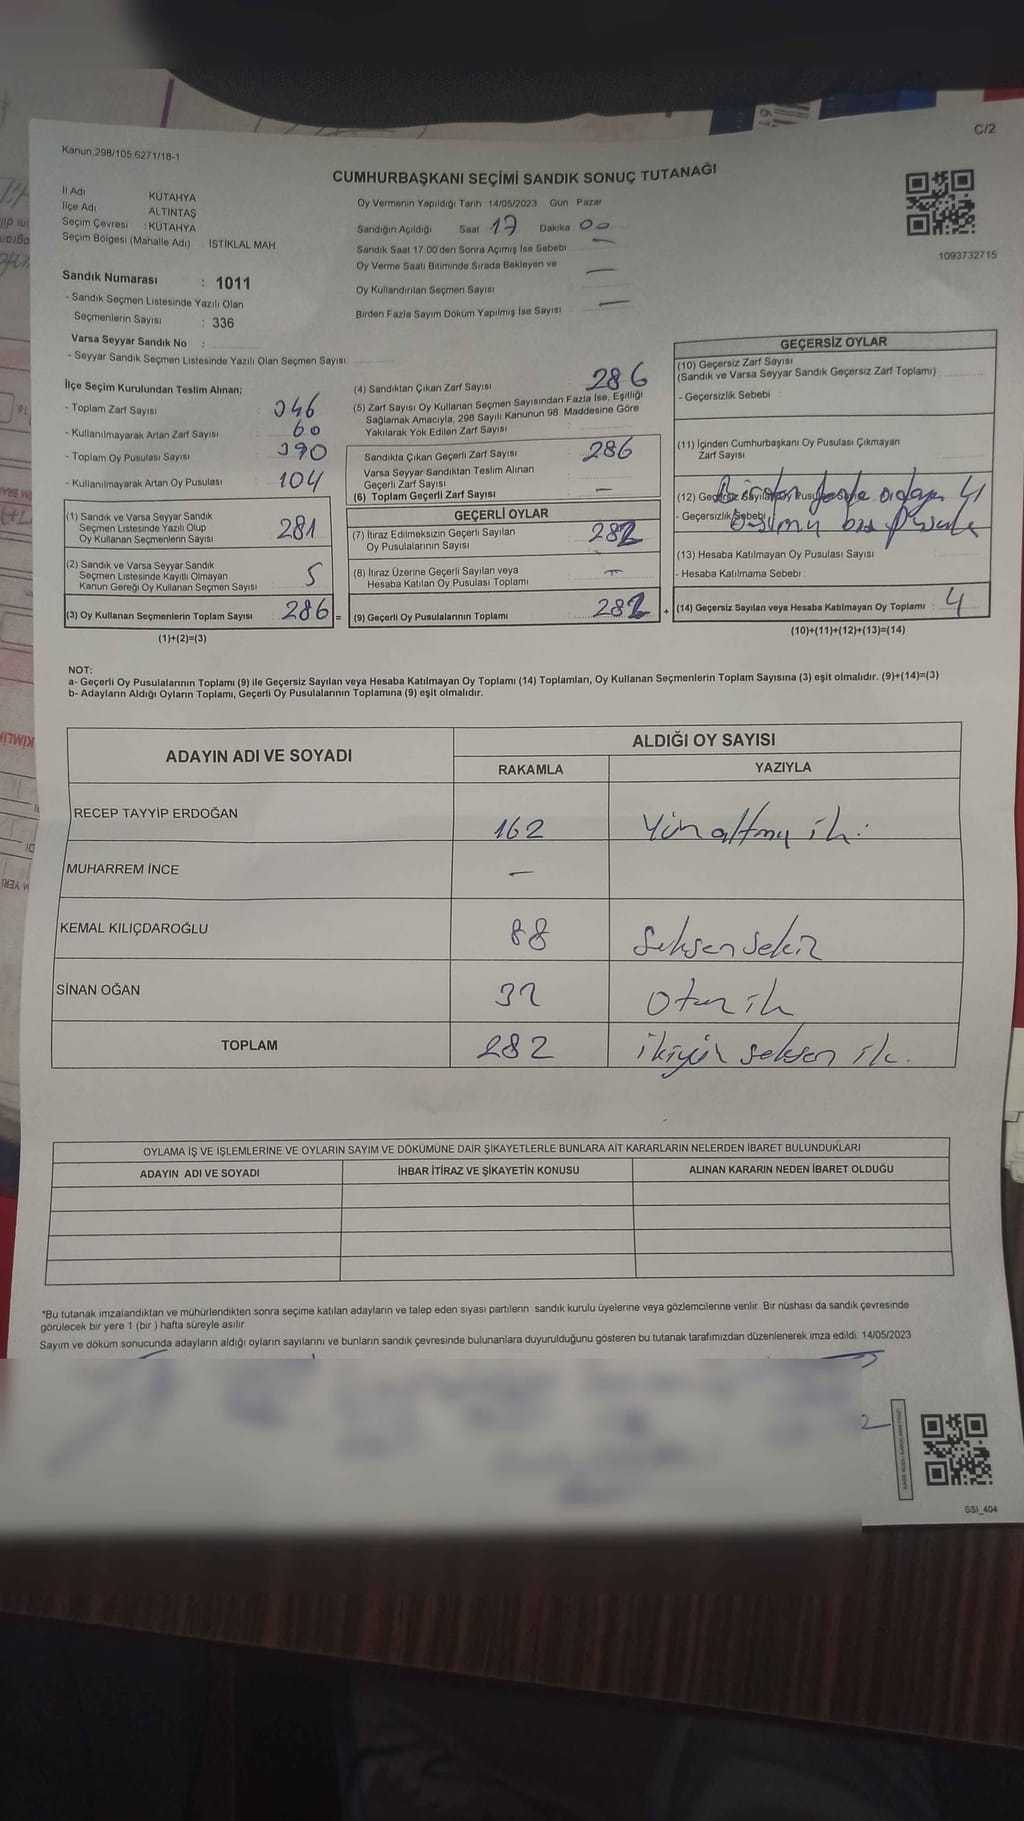 C/2
Kanun,298/105,6271/18-1
CUMHURBAŞKANI SEÇİMİ SANDIK SONUÇ TUTANAĞI
1093732715
İl Adı : KÜTAHYA
İlçe Adı : ALTINTAŞ
Seçim Çevresi : KÜTAHYA
Seçim Bölgesi (Mahalle Adı) İSTİKLAL MAH.
Oy Vermenin Yapıldığı Tarih 14/05/2023 Gün Pazar
Sandığın Açıldığı Saat 17 Dakika 00
Sandık Saat 17.00'den Sonra Açımış İse Sebebi —
Oy Verme Saati Bitiminde Sırada Bekleyen ve
Oy Kullandırılan Seçmen Sayısı —
Birden Fazla Sayım Döküm Yapılmış İse Sayısı —
Sandık Numarası : 1011
- Sandık Seçmen Listesinde Yazılı Olan
Seçmenlerin Sayısı : 336
Varsa Seyyar Sandık No :
- Seyyar Sandık Seçmen Listesinde Yazılı Olan Seçmen Sayısı:
İlçe Seçim Kurulundan Teslim Alınan;
- Toplam Zarf Sayısı 346
- Kullanılmayarak Artan Zarf Sayısı 60
- Toplam Oy Pusulası Sayısı 390
- Kullanılmayarak Artan Oy Pusulası 104
(1) Sandık ve Varsa Seyyar Sandık
Seçmen Listesinde Yazılı Olup
Oy Kullanan Seçmenlerin Sayısı 281
(2) Sandık ve Varsa Seyyar Sandık
Seçmen Listesinde Kayıtlı Olmayan
Kanun Gereği Oy Kullanan Seçmen Sayısı 5
(3) Oy Kullanan Seçmenlerin Toplam Sayısı 286 =
(1)+(2)=(3)
(4) Sandıktan Çıkan Zarf Sayısı 286
(5) Zarf Sayısı Oy Kullanan Seçmen Sayısından Fazla İse, Eşitliği
Sağlamak Amacıyla, 298 Sayılı Kanunun 98. Maddesine Göre
Yakılarak Yok Edilen Zarf Sayısı
Sandıkta Çıkan Geçerli Zarf Sayısı 286
Varsa Seyyar Sandıktan Teslim Alınan
Geçerli Zarf Sayısı
(6) Toplam Geçerli Zarf Sayısı —
GEÇERLİ OYLAR
(7) İtiraz Edilmeksizin Geçerli Sayılan
Oy Pusulalarının Sayısı 282
(8) İtiraz Üzerine Geçerli Sayılan veya
Hesaba Katılan Oy Pusulası Toplamı —
(9) Geçerli Oy Pusulalarının Toplamı 282 +
GEÇERSİZ OYLAR
(10) Geçersiz Zarf Sayısı
(Sandık ve Varsa Seyyar Sandık Geçersiz Zarf Toplamı)
- Geçersizlik Sebebi :
(11) İçinden Cumhurbaşkanı Oy Pusulası Çıkmayan
Zarf Sayısı
(12) Geçersiz Sayılan Oy Pusulası
- Geçersizlik Sebebi
(13) Hesaba Katılmayan Oy Pusulası Sayısı
- Hesaba Katılmama Sebebi :
(14) Geçersiz Sayılan veya Hesaba Katılmayan Oy Toplamı : 4
(10)+(11)+(12)+(13)=(14)
NOT:
a- Geçerli Oy Pusulalarının Toplamı (9) ile Geçersiz Sayılan veya Hesaba Katılmayan Oy Toplamı (14) Toplamları, Oy Kullanan Seçmenlerin Toplam Sayısına (3) eşit olmalıdır. (9)+(14)=(3)
b- Adayların Aldığı Oyların Toplamı, Geçerli Oy Pusulalarının Toplamına (9) eşit olmalıdır.
ADAYIN ADI VE SOYADI
ALDIĞI OY SAYISI
RAKAMLA YAZIYLA
RECEP TAYYİP ERDOĞAN 162 Yüz altmış iki
MUHARREM İNCE —
KEMAL KILIÇDAROĞLU 88 Seksen sekiz
SİNAN OĞAN 32 Otuz iki
TOPLAM 282 ikiyüz seksen iki
OYLAMA İŞ VE İŞLEMLERİNE VE OYLARIN SAYIM VE DÖKÜMÜNE DAİR ŞİKAYETLERLE BUNLARA AİT KARARLARIN NELERDEN İBARET BULUNDUKLARI
ADAYIN ADI VE SOYADI İHBAR İTİRAZ VE ŞİKAYETİN KONUSU ALINAN KARARIN NEDEN İBARET OLDUĞU
*Bu tutanak imzalandıktan ve mühürlendikten sonra seçime katılan adayların ve talep eden siyasi partilerin sandık kurulu üyelerine veya gözlemcilerine verilir. Bir nüshası da sandık çevresinde
görülecek bir yere 1 (bir ) hafta süreyle asılır.
Sayım ve döküm sonucunda adayların aldığı oyların sayılarını ve bunların sandık çevresinde bulunanlara duyurulduğunu gösteren bu tutanak tarafımızdan düzenlenerek imza edildi. 14/05/2023
SSI_404